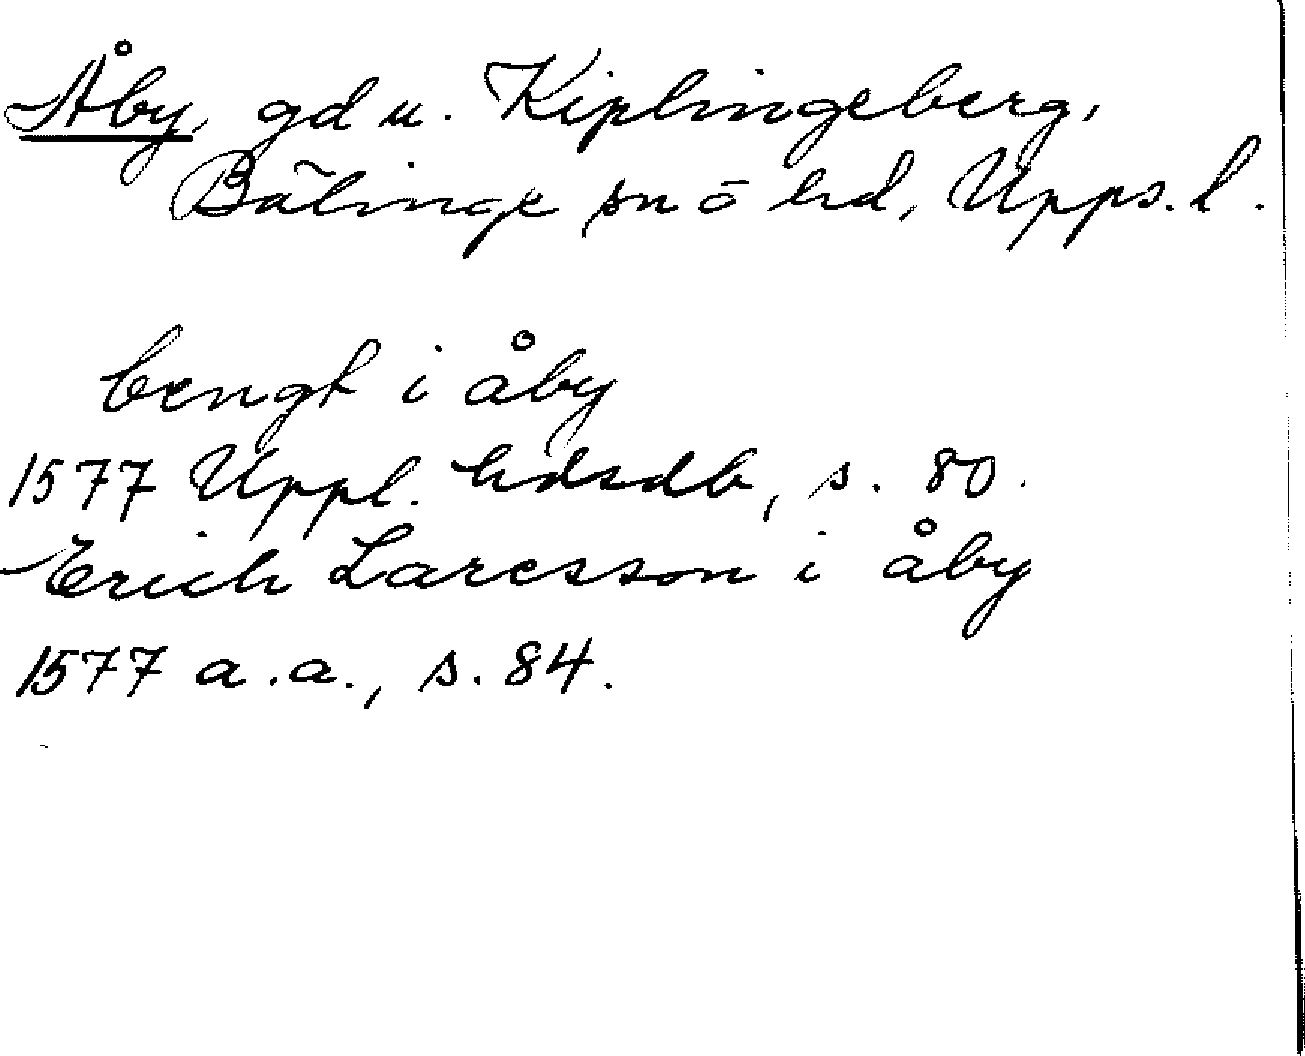 Åby, gd u. Kiplingeberg,
Bälinge sn o hd, Upps. l.
bengt i åby
1577 Uppl. hdsdb, s. 80.
Erich Larsson i åby
1577 a.a., s. 84.